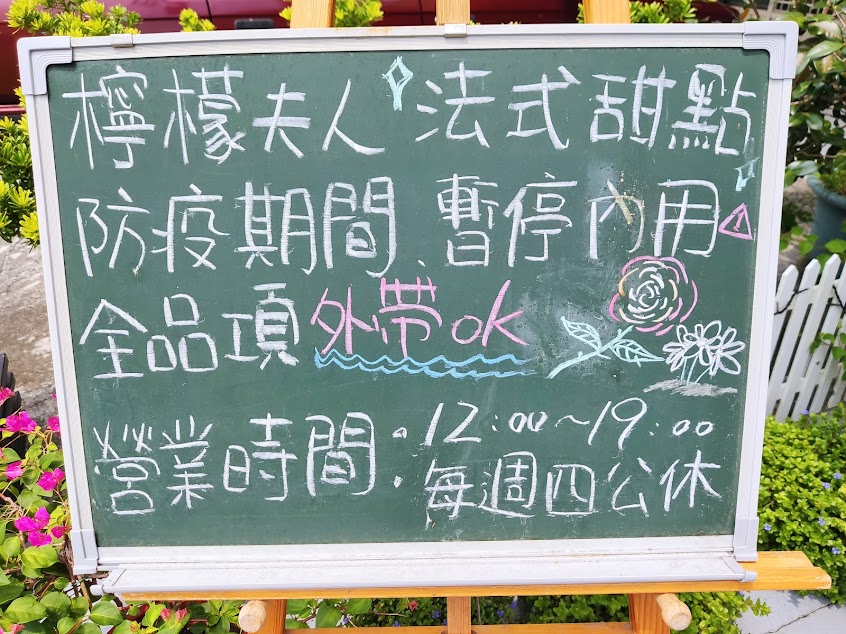 檸檬夫人 法式甜點
防疫期間、暫停內用
全品項外帶ok
營業時間:12:00~19:00
每週四公休